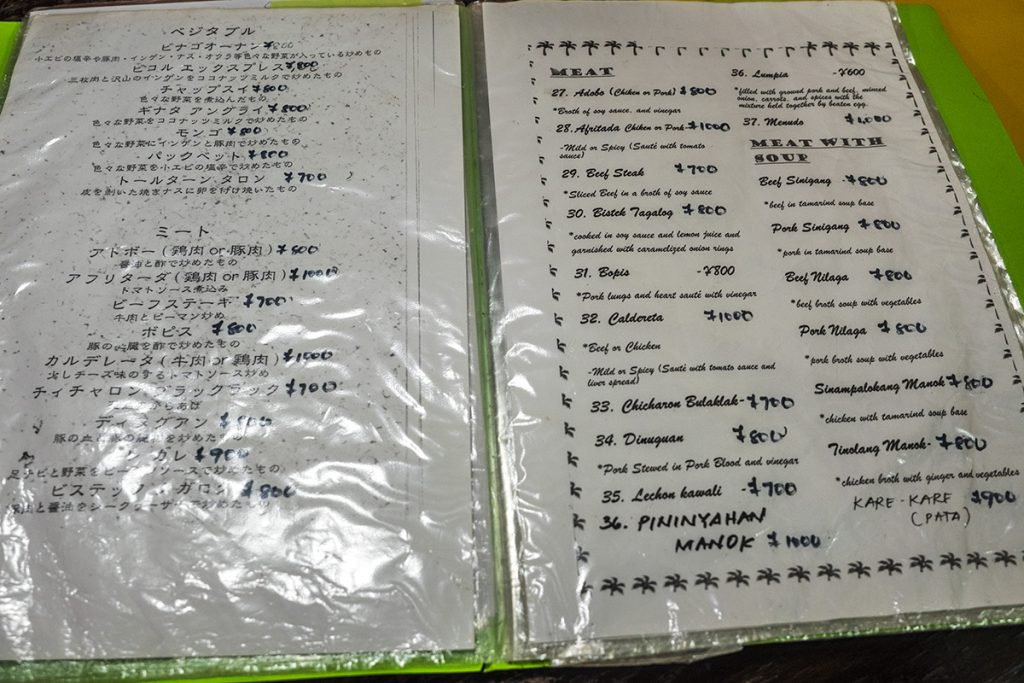 ベジタブル
ピナゴオーナン ¥800
小エビの塩辛や豚肉・インゲン・ナス・オクラ等色々な野菜が入っている炒めもの
ビコル エックスプレス ¥800
三枚肉と沢山のインゲンをココナッツミルクで炒めたもの
チャップスイ ¥800
色々な野菜を煮込んだもの
ギナタ アングライ ¥800
色々な野菜をココナッツミルクで炒めたもの
モンゴ ¥800
色々な野菜にインゲンと豚肉で炒めたもの
パックベット ¥800
色々な野菜を小エビの塩辛で炒めたもの
トールターン タロン ¥700
皮を剥いた焼きナスに卵を付け焼いたもの
ミート
アドボー(鶏肉 or 豚肉) ¥800
醤油と酢で炒めたもの
アフリターダ(鶏肉 or 豚肉) ¥1000
トマトソース煮込み
ビーフステーキ ¥700
牛肉とピーマン炒め
ボピス ¥800
豚の心臓を酢で炒めたもの
カルデレータ(牛肉 or 鶏肉) ¥1000
少しチーズ味のするトマトソース炒め
チイチャロン ブラックラック ¥700
ディヌグアン ¥800
豚の血と豚の
カレ ¥900
足
ビステック ガロッ ¥800
MEAT
27. Adobo (Chiken or Pork) ¥800
*Broth of soy sauce, and vinegar
28. Afritada Chiken or Pork- ¥1000
-Mild or Spicy (Sauté with tomato
sauce)
29. Beef Steak ¥700
*Sliced Beef in a broth of soy sauce
30. Bistek Tagalog ¥800
*cooked in soy sauce and lemon juice and
garnished with caramelized onion rings
31. Bopis -¥800
*Pork lungs and heart sauté with vinegar
32. Caldereta ¥1000
*Beef or Chicken
-Mild or Spicy (Sauté with tomato sauce and
liver spread)
33. Chicharon Bulaklak- ¥700
34. Dinuguan ¥800
*Pork Stewed in Pork Blood and vinegar
35. Lechon kawali - ¥700
36. PININYAHAN
MANOK ¥1000
36. Lumpia -¥600
*filled with ground pork and beef, minced
onion, carrots, and spices with the
mixture held together by beaten egg.
37. Menudo ¥1,000
MEAT WITH
SOUP
Beef Sinigang - ¥800
*beef in tamarind soup base
Pork Sinigang ¥800
*pork in tamarind soup base
Beef Nilaga ¥800
*beef broth soup with vegetables
Pork Nilaga ¥800
*pork broth soup with vegetables
Sinampalokang Manok ¥800
*chicken with tamarind soup base
Tinolang Manok- ¥800
*chicken broth with ginger and vegetables
KARE-KARE ¥900
(PATA)